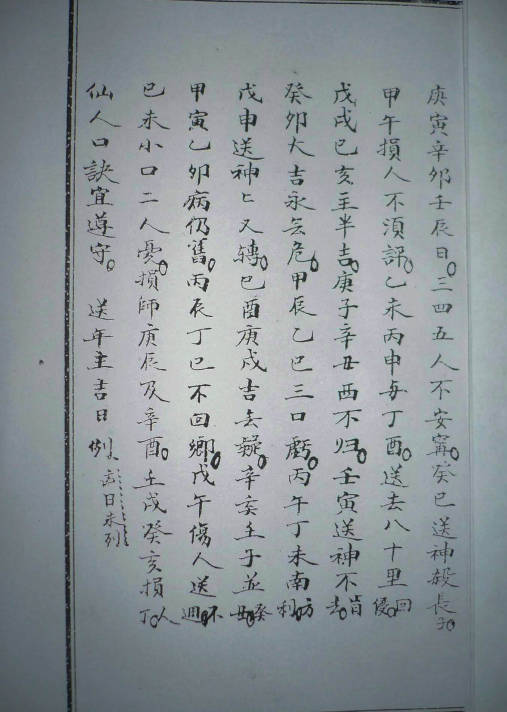 庚寅辛卯壬辰日。三四五人不安寗。癸巳送神殺長子。
甲午損人不須訝。乙未丙申每丁酉。送去八十里回
戊戌巳亥主半吉。庚子辛丑酉不归。壬寅送神不肯去。
癸卯大吉永無危。甲辰乙巳三口虧。丙午丁未南方利。
戊申送神匕又轉。巳酉庚戍吉無疑。辛亥壬子並癸丑。
甲寅乙卯病仍舊。丙辰丁巳不回鄉。戊午傷人送不迴。
巳未小口二人憂。損師庚辰及辛酉。壬戍癸亥損人丁。
仙人口訣宜遵守。 送年主吉日例。
日未列